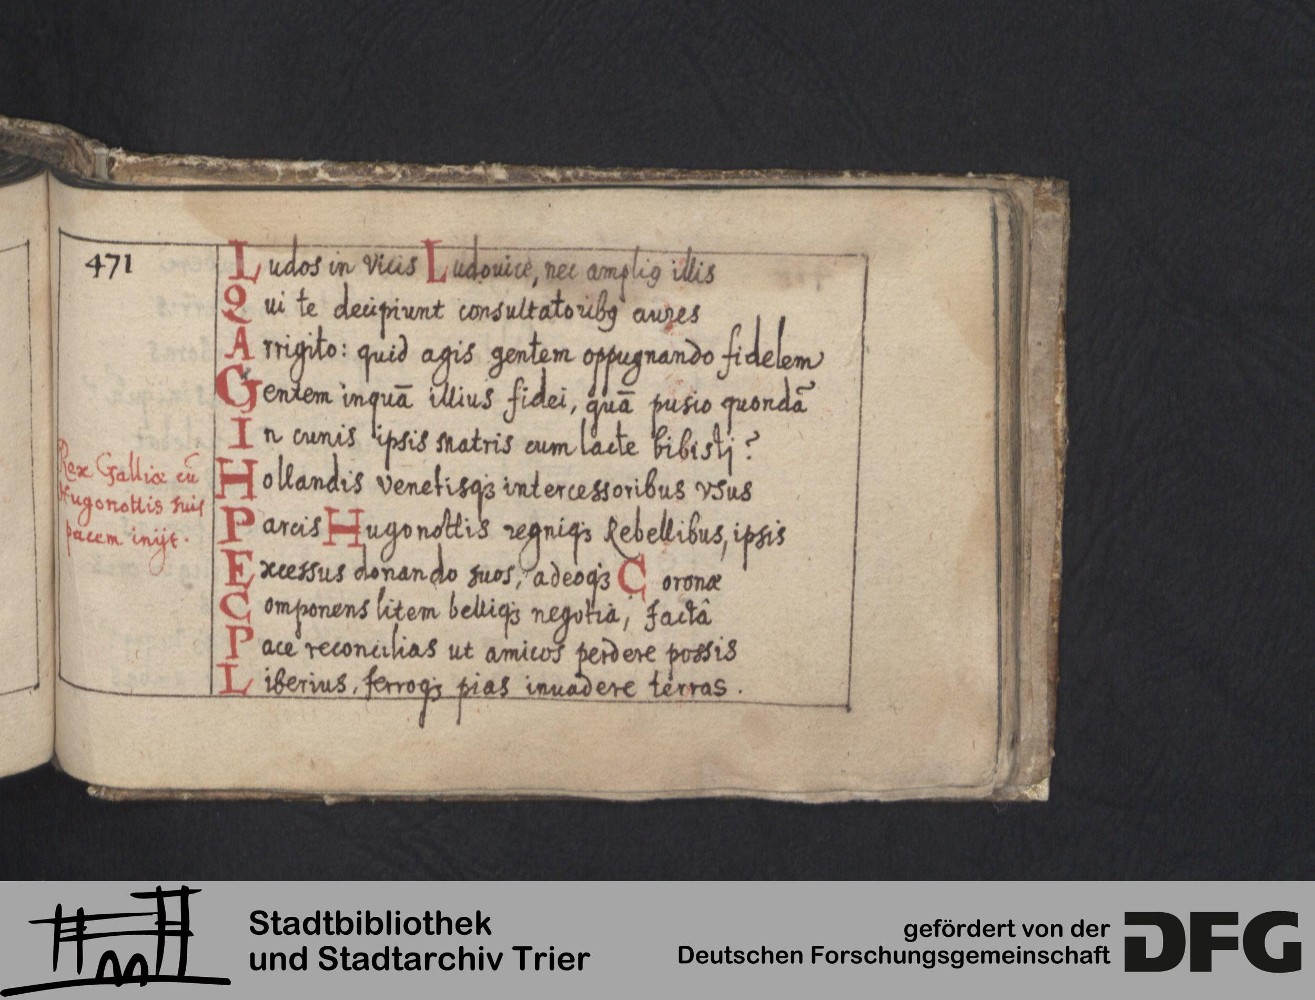 471
Ludos in vicis Ludouice, nec ampliꝰ illis
Qui te decipiunt consultatoribꝰ aures
Arrigito: quid agis gentem oppugnando fidelem
Gentem inquā illius fidei, quā pusio quondā
In cunis ipsis matris cum lacte bibistj?
Hollandis venetisqꝫ intercessoribus vsus
Parcis Hugonottis regniqꝫ Rebellibus, ipsis
Excessus donando suos, adeoqꝫ Coronæ
Componens litem belliqꝫ negotia, factâ
Pace reconcilias ut amicos perdere possis
Liberius, ferroqꝫ pias inuadere terras.
Rex Galliæ cū
Hugonottis suis
pacem inijt.
Stadtbibliothek
und Stadtarchiv Trier
gefördert von der
Deutschen Forschungsgemeinschaft
DFG